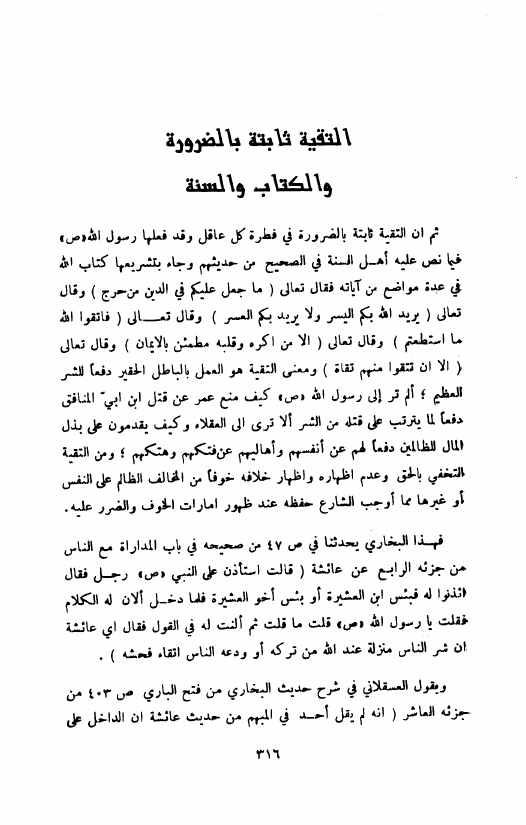 التقية ثابتة بالضرورة
والكتاب والسنة
ثم ان التقية ثابتة بالضرورة في فطرة كل عاقل وقد فعلها رسول الله «ص»
فيما نص عليه أهل السنة في الصحيح من حديثهم وجاء بتشريعها كتاب الله
في عدة مواضع من آياته فقال تعالى ( ما جعل عليكم في الدين من حرج ) وقال
تعالى ( يريد الله بكم اليسر ولا يريد بكم العسر ) وقال تعالى ( فاتقوا الله
ما استطعتم ) وقال تعالى ( الا من اكره وقلبه مطمئن بالايمان ) وقال تعالى
( الا ان تتقوا منهم تقاة ) ومعنى التقية هو العمل بالباطل الحقير دفعاً للشر
العظيم ؛ ألم تر إلى رسول الله «ص» كيف منع عمر عن قتل ابن ابيّ المنافق
دفعاً لما يترتب على قتله من الشر ألا ترى الى العقلاء وكيف يقدمون على بذل
المال للظالمين دفعاً لهم عن أنفسهم وأهاليهم عن فتكهم وهتكهم ؛ ومن التقية
التخفي بالحق وعدم اظهاره واظهار خلافه خوفاً من المخالف الظالم على النفس
أو غيرها مما أوجب الشارع حفظه عند ظهور امارات الخوف والضرر عليه .
فهذا البخاري يحدثنا في ص ٤٧ من صحيحه في باب المداراة مع الناس
من جزئه الرابع عن عائشة ( قالت استأذن على النبي «ص» رجل فقال
ائذنوا له فبئس ابن العشيرة أو بئس أخو العشيرة فلما دخل ألان له الكلام
فقلت يا رسول الله «ص» قلت ما قلت ثم ألنت له في القول فقال اي عائشة
ان شر الناس منزلة عند الله من تركه أو ودعه الناس اتقاء فحشه ) .
ويقول العسقلاني في شرح حديث البخاري من فتح الباري ص ٤٠٣ من
جزئه العاشر ( انه لم يقل أحد في المبهم من حديث عائشة ان الداخل على
٣١٦